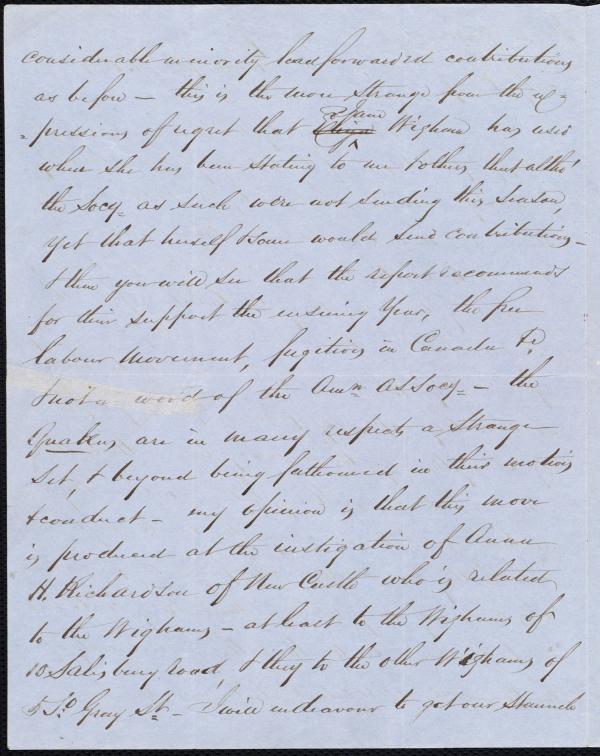 considerable minority had forwarded contributions
as before — this is the more strange from the ex=
=pressions of regret that Eliza & Jane Wigham has used
when she has been stating to me & others, that altho'
the Socy. as such were not sending this Season,
yet that herself & some would send contributions —
& then you will see that the report recommends
for their support the ensuing Year, the free
labour movement, fugitives in Canada &c,
& not a word of the Amn. AS Socy. — the
Quakers, are in many respects a Strange
Set, & beyond being fathomed in their motives
& conduct — my opinion is that this move
is produced at the instigation of Anna
H. Richardson of New Castle who is related
to the Wighams — at least to the Wighams of
10 Salisbury road, & they to the other Wighams of
5 So. Gray St. — I will endeavour to get our Staunch